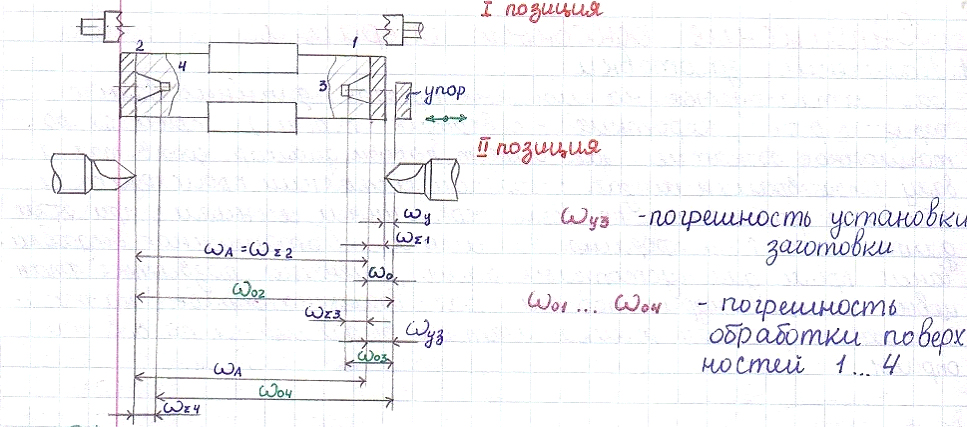 I позиция
2
1
4
3
упор
II позиция
ωу
ωΣ1
ωА = ωΣ2
ωо
ωо2
ωΣ3
ωуз
ωо3
ωА
ωо4
ωΣ4
ωуз - погрешность установки
заготовки
ωо1 ... ωо4 - погрешность
обработки поверх
ностей 1...4